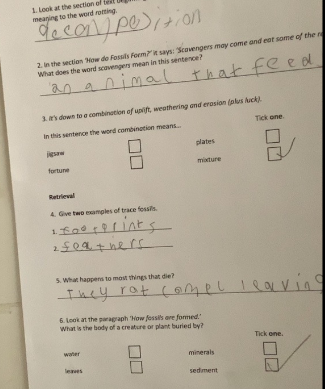 1. Look at the section of text
meaning to the word rotting.
decomposition
2. In the section 'How do Fossils Form?' it says: 'Scavengers may come and eat some of the
What does the word scavengers mean in this sentence?
an animal that feed
3. it's down to a combination of uplift, weathering and erosion (plus luck).
Tick one.
In this sentence the word combination means...
jigsaw
plates
fortune
mixture
Retrieval
4. Give two examples of trace fossils.
1. footprints
2. feathers
5. What happens to most things that die?
They rot leaving
6. Look at the paragraph 'How fossils are formed.'
What is the body of a creature or plant buried by?
Tick one.
water
minerals
leaves
sediment